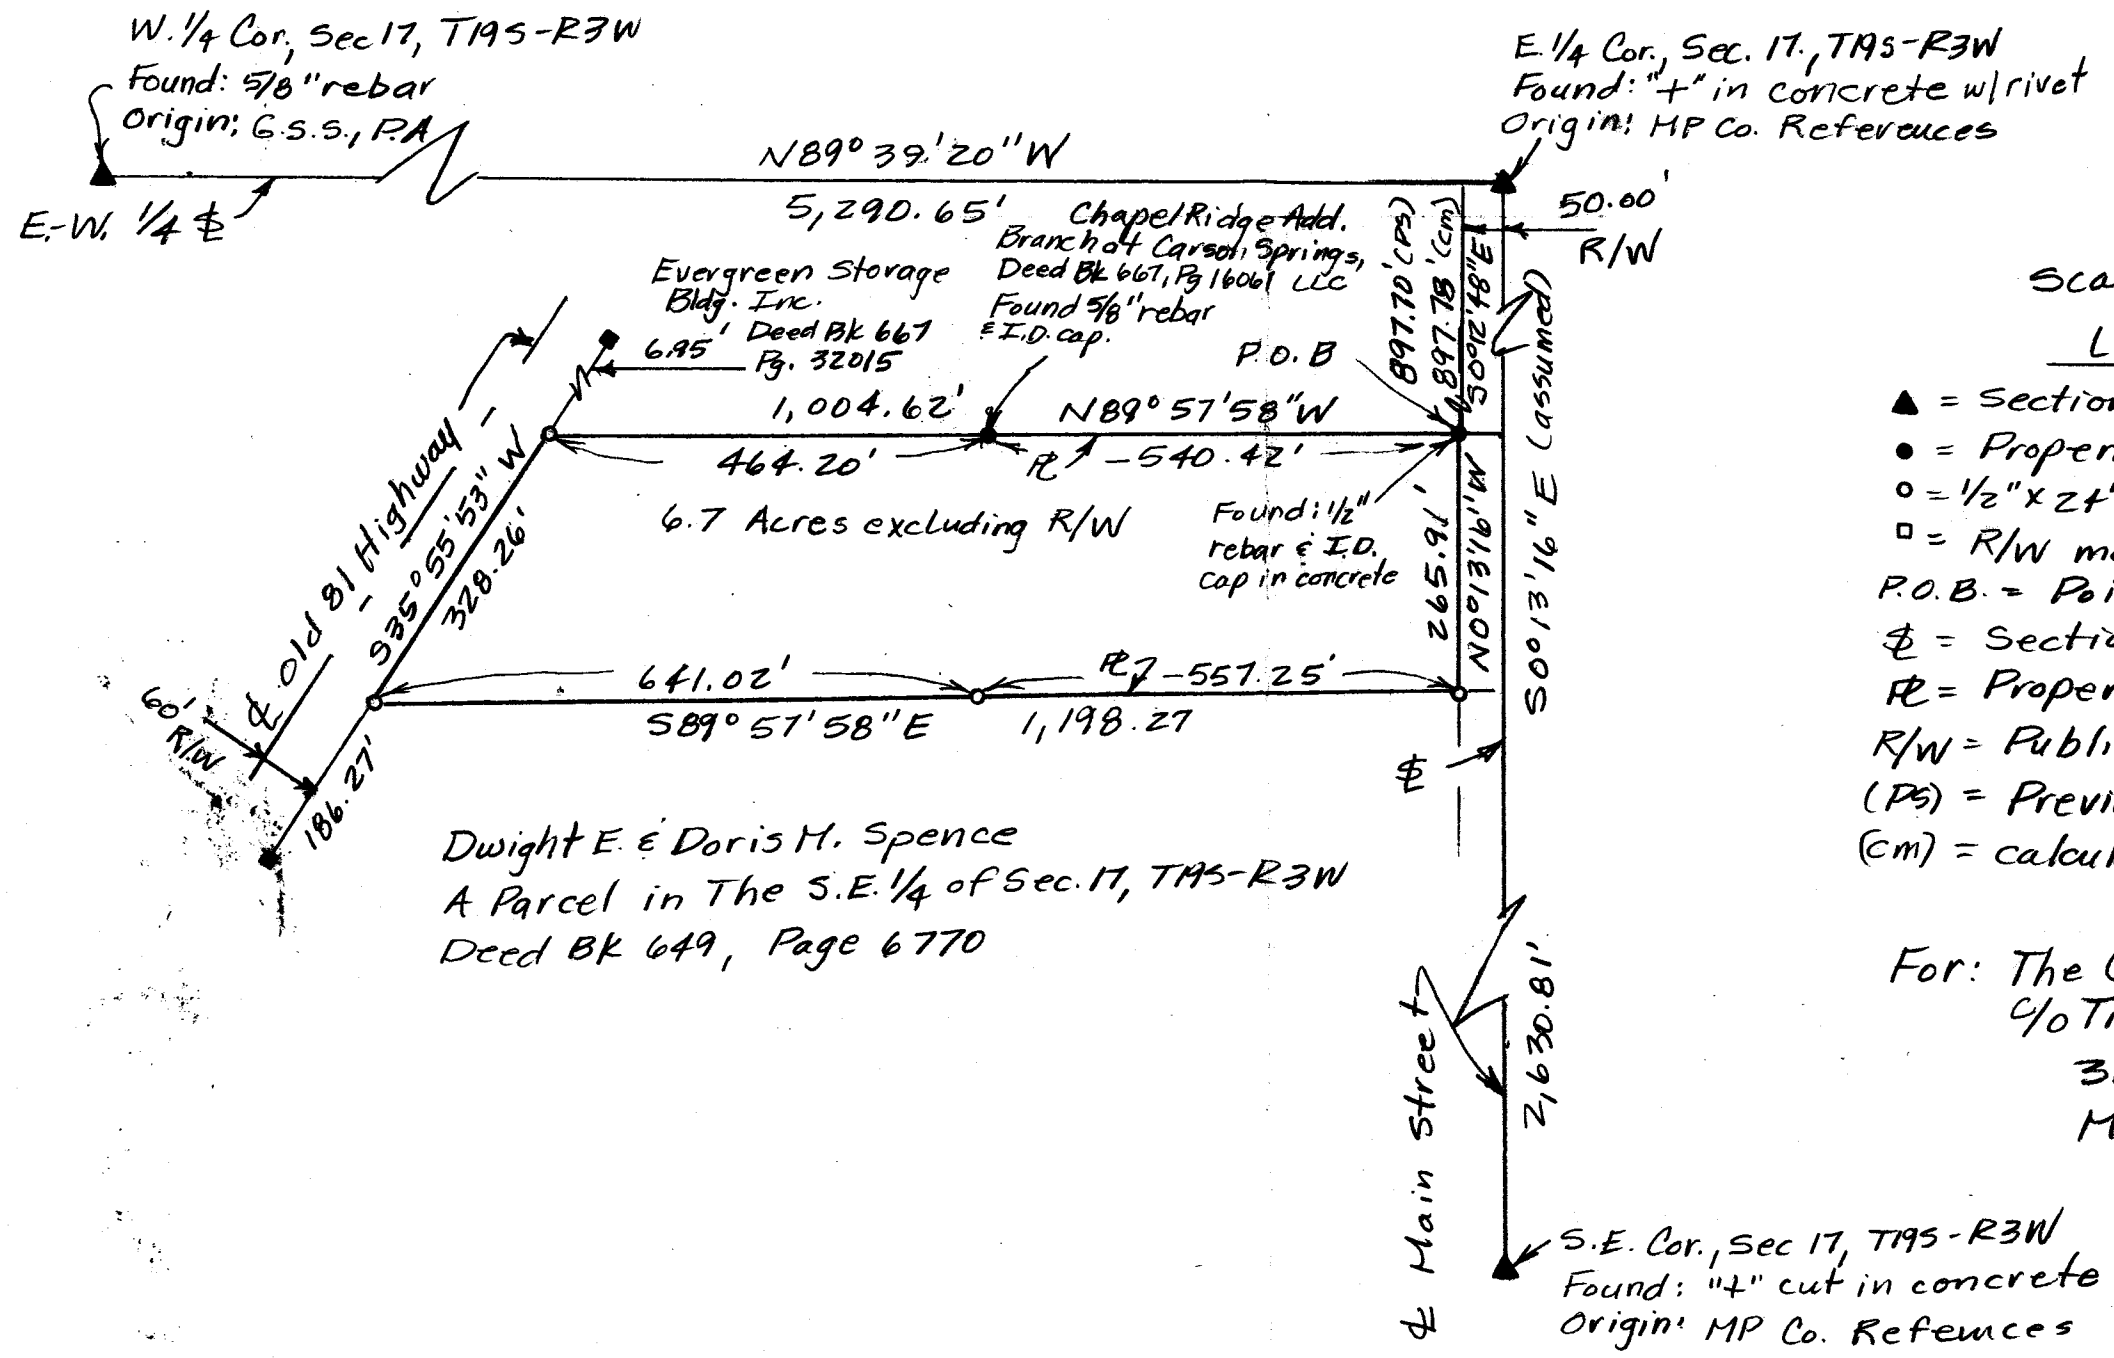 W. 1/4 Cor., Sec 17, T19S-R3W
Found: 5/8" rebar
Origin: G.S.S., P.A
E.-W. 1/4 ⅊
N89° 39' 20" W
5,290.65'
E. 1/4 Cor., Sec. 17., T19S-R3W
Found: "+" in concrete w/rivet
Origin: MP Co. References
50.00'
R/W
Chapel Ridge Add.
Branch of Carson Springs,
Deed Bk 667, Pg 16061 LLC
Found 5/8" rebar
& I.D. cap.
Evergreen Storage
Bldg. Inc.
Deed Bk 667
Pg. 32015
6.95'
897.70' (PS)
897.78' (cm)
S0°12'48"E
P.O.B
1,004.62'
N89° 57' 58" W
464.20'
PL -540.42'
6.7 Acres excluding R/W
Found: 1/2"
rebar & I.D.
cap in concrete
265.91'
N0°13'16"W
S0°13'16" E (assumed)
℄ Old 81 Highway
S35° 55' 53" W
328.26'
641.02'
PL -557.25'
S89° 57' 58" E
1,198.27
60'
R/W
186.27'
Dwight E. & Doris M. Spence
A Parcel in The S.E. 1/4 of Sec. 17, T19S-R3W
Deed Bk 649, Page 6770
℄ Main Street
2,630.81'
S.E. Cor., Sec 17, T19S-R3W
Found: "+" cut in concrete
Origin: MP Co. Refernces
Sca
L
▲ = Section
● = Proper
○ = 1/2" x 24"
□ = R/W m
P.O.B. = Poi
= Sectio
PL = Proper
R/W = Publi
(PS) = Previ
(cm) = calcul
For: The
c/o Ti
3
M